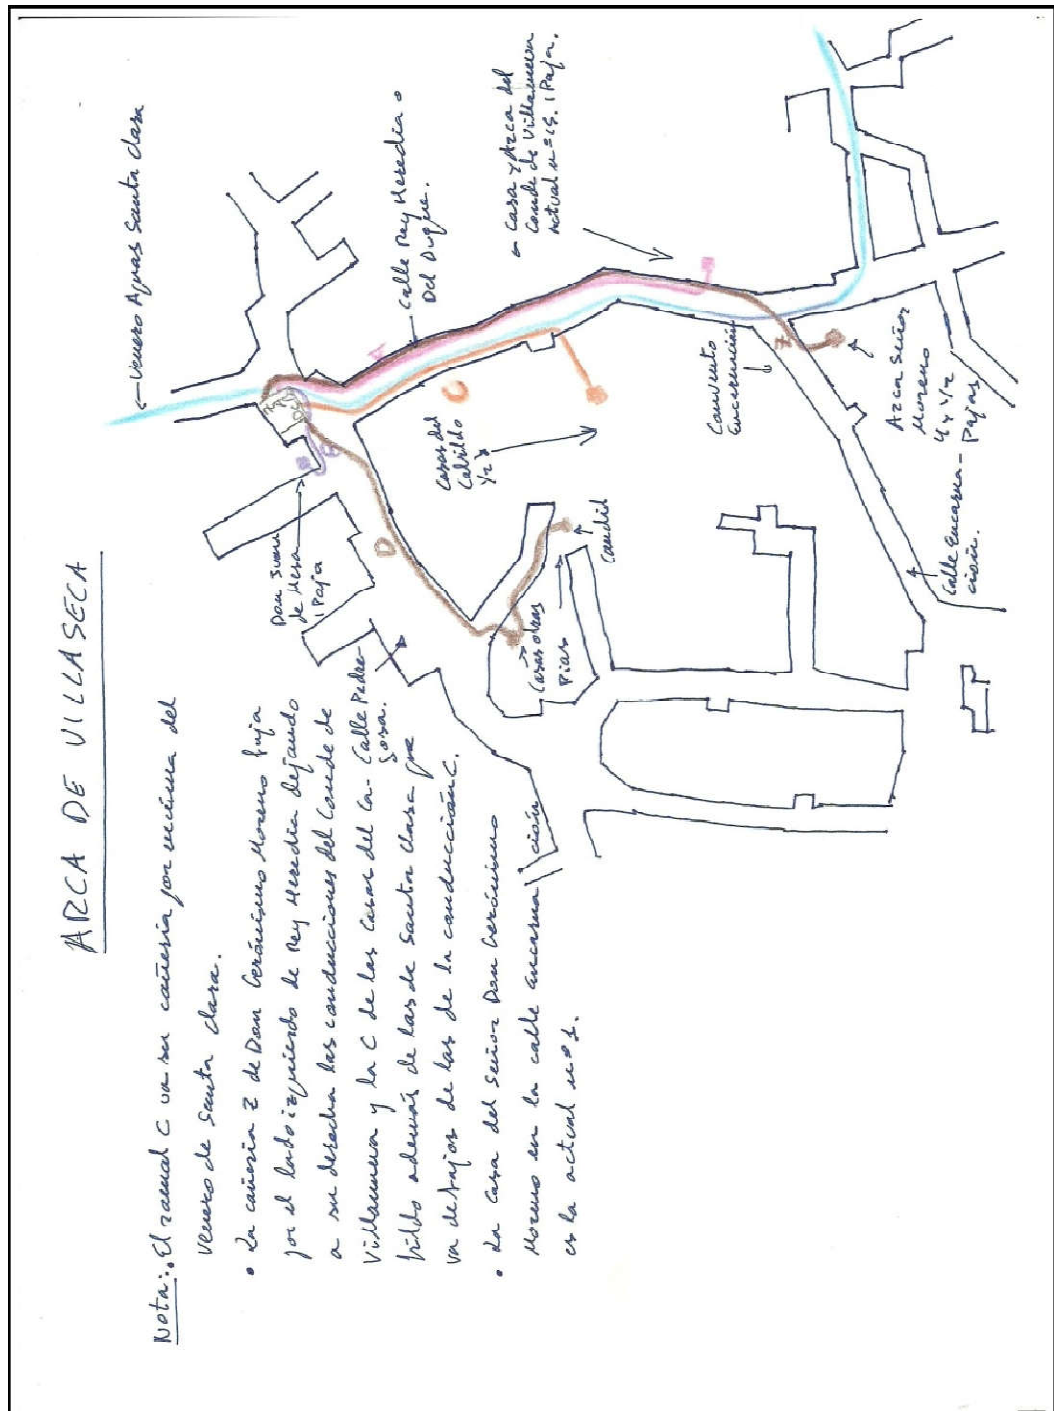 ARCA DE VILLASECA
Nota:. El ramal C va su cañeria por encima del
venero de Santa Clara.
• La cañeria Z de Don Gerónimo Moreno baja
por el lado izquierdo de Rey Heredia dejando
a su derecha las conducciones del Conde de
Villanueva y la C de las Casas del Ca-
bildo además de las de Santa Clara que
va debajos de las de la conducción C.
• La Casa del Señor Don Gerónimo
Moreno en la calle Encarnación
es la actual nº 1.
← Venero Aguas Santa Clara
Calle Rey Heredia o
Del Duque.
← Casa y Arca del
Conde de Villanueva
actual nº 15. 1 Paja.
A
C
D
Z
Don
de Mesa
1 Paja
Casas del
Cabildo
1/2
Calle Pedre-
gosa.
Casas obras
Pias
Candil
Convento
Encarnación
Arca Señor
Moreno
4 y 1/2
Pajas
Calle Encarna-
ción.